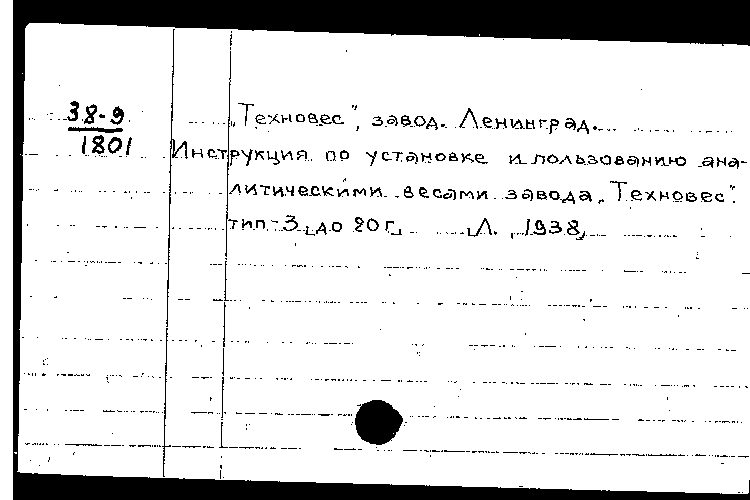 38-9
1801
„Техновес", завод. Ленинград.
Инструкция по установке и пользованию ана-
литическими весами завода „Техновес".
тип-3, до 20 г., Л., 1938,